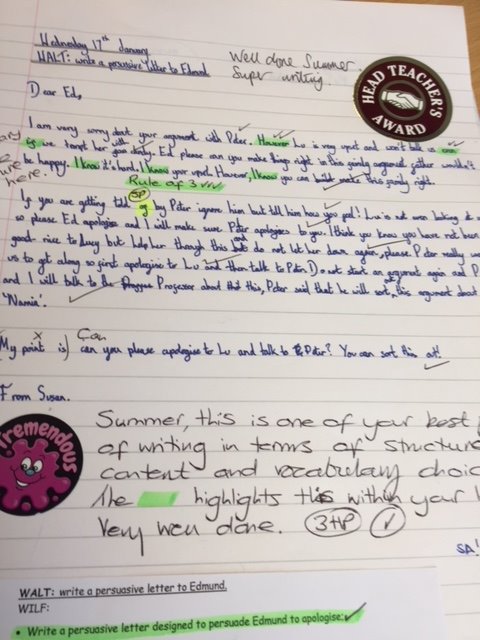 Wednesday 17th January
WALT: write a persuasive letter to Edmund
Well done Summer.
Super writing.
HEAD TEACHER'S
AWARD
Dear Ed,
I am very sorry about your argument with Peter. However Lu is very upset and won't talk to
if we tempt her with your turkey. Ed please can you make things right in this family argument father wouldn't
be happy. I know it's hard, I know your upset. However, I know you can make this family right.
here.
Rule of 3 ✓✓✓
SP
If you are getting told of by Peter ignore him but tell him how you feel! Lu is not even looking at
so please Ed apologise and I will make sure Peter apologies to you. I think you know you have not been
good nice to Lucy but help her through this and do not let her down again, please Peter really
us to get along so first apologise to Lu and then talk to Peter. Do not start an argument again and
and I will talk to the Professor about this, Peter said that he will sort out this argument about
'Narnia'.
x Can
(My point is) can you please apologise to Lu and talk to Peter? You can sort this out!
From Susan.
Tremendous
Summer, this is one of your best
of writing in terms of structure
content and vocabulary
The highlights this within your
Very well done. 3HP ✓
SA!
WALT: write a persuasive letter to Edmund.
WILF:
• Write a persuasive letter designed to persuade Edmund to apologise: ✓